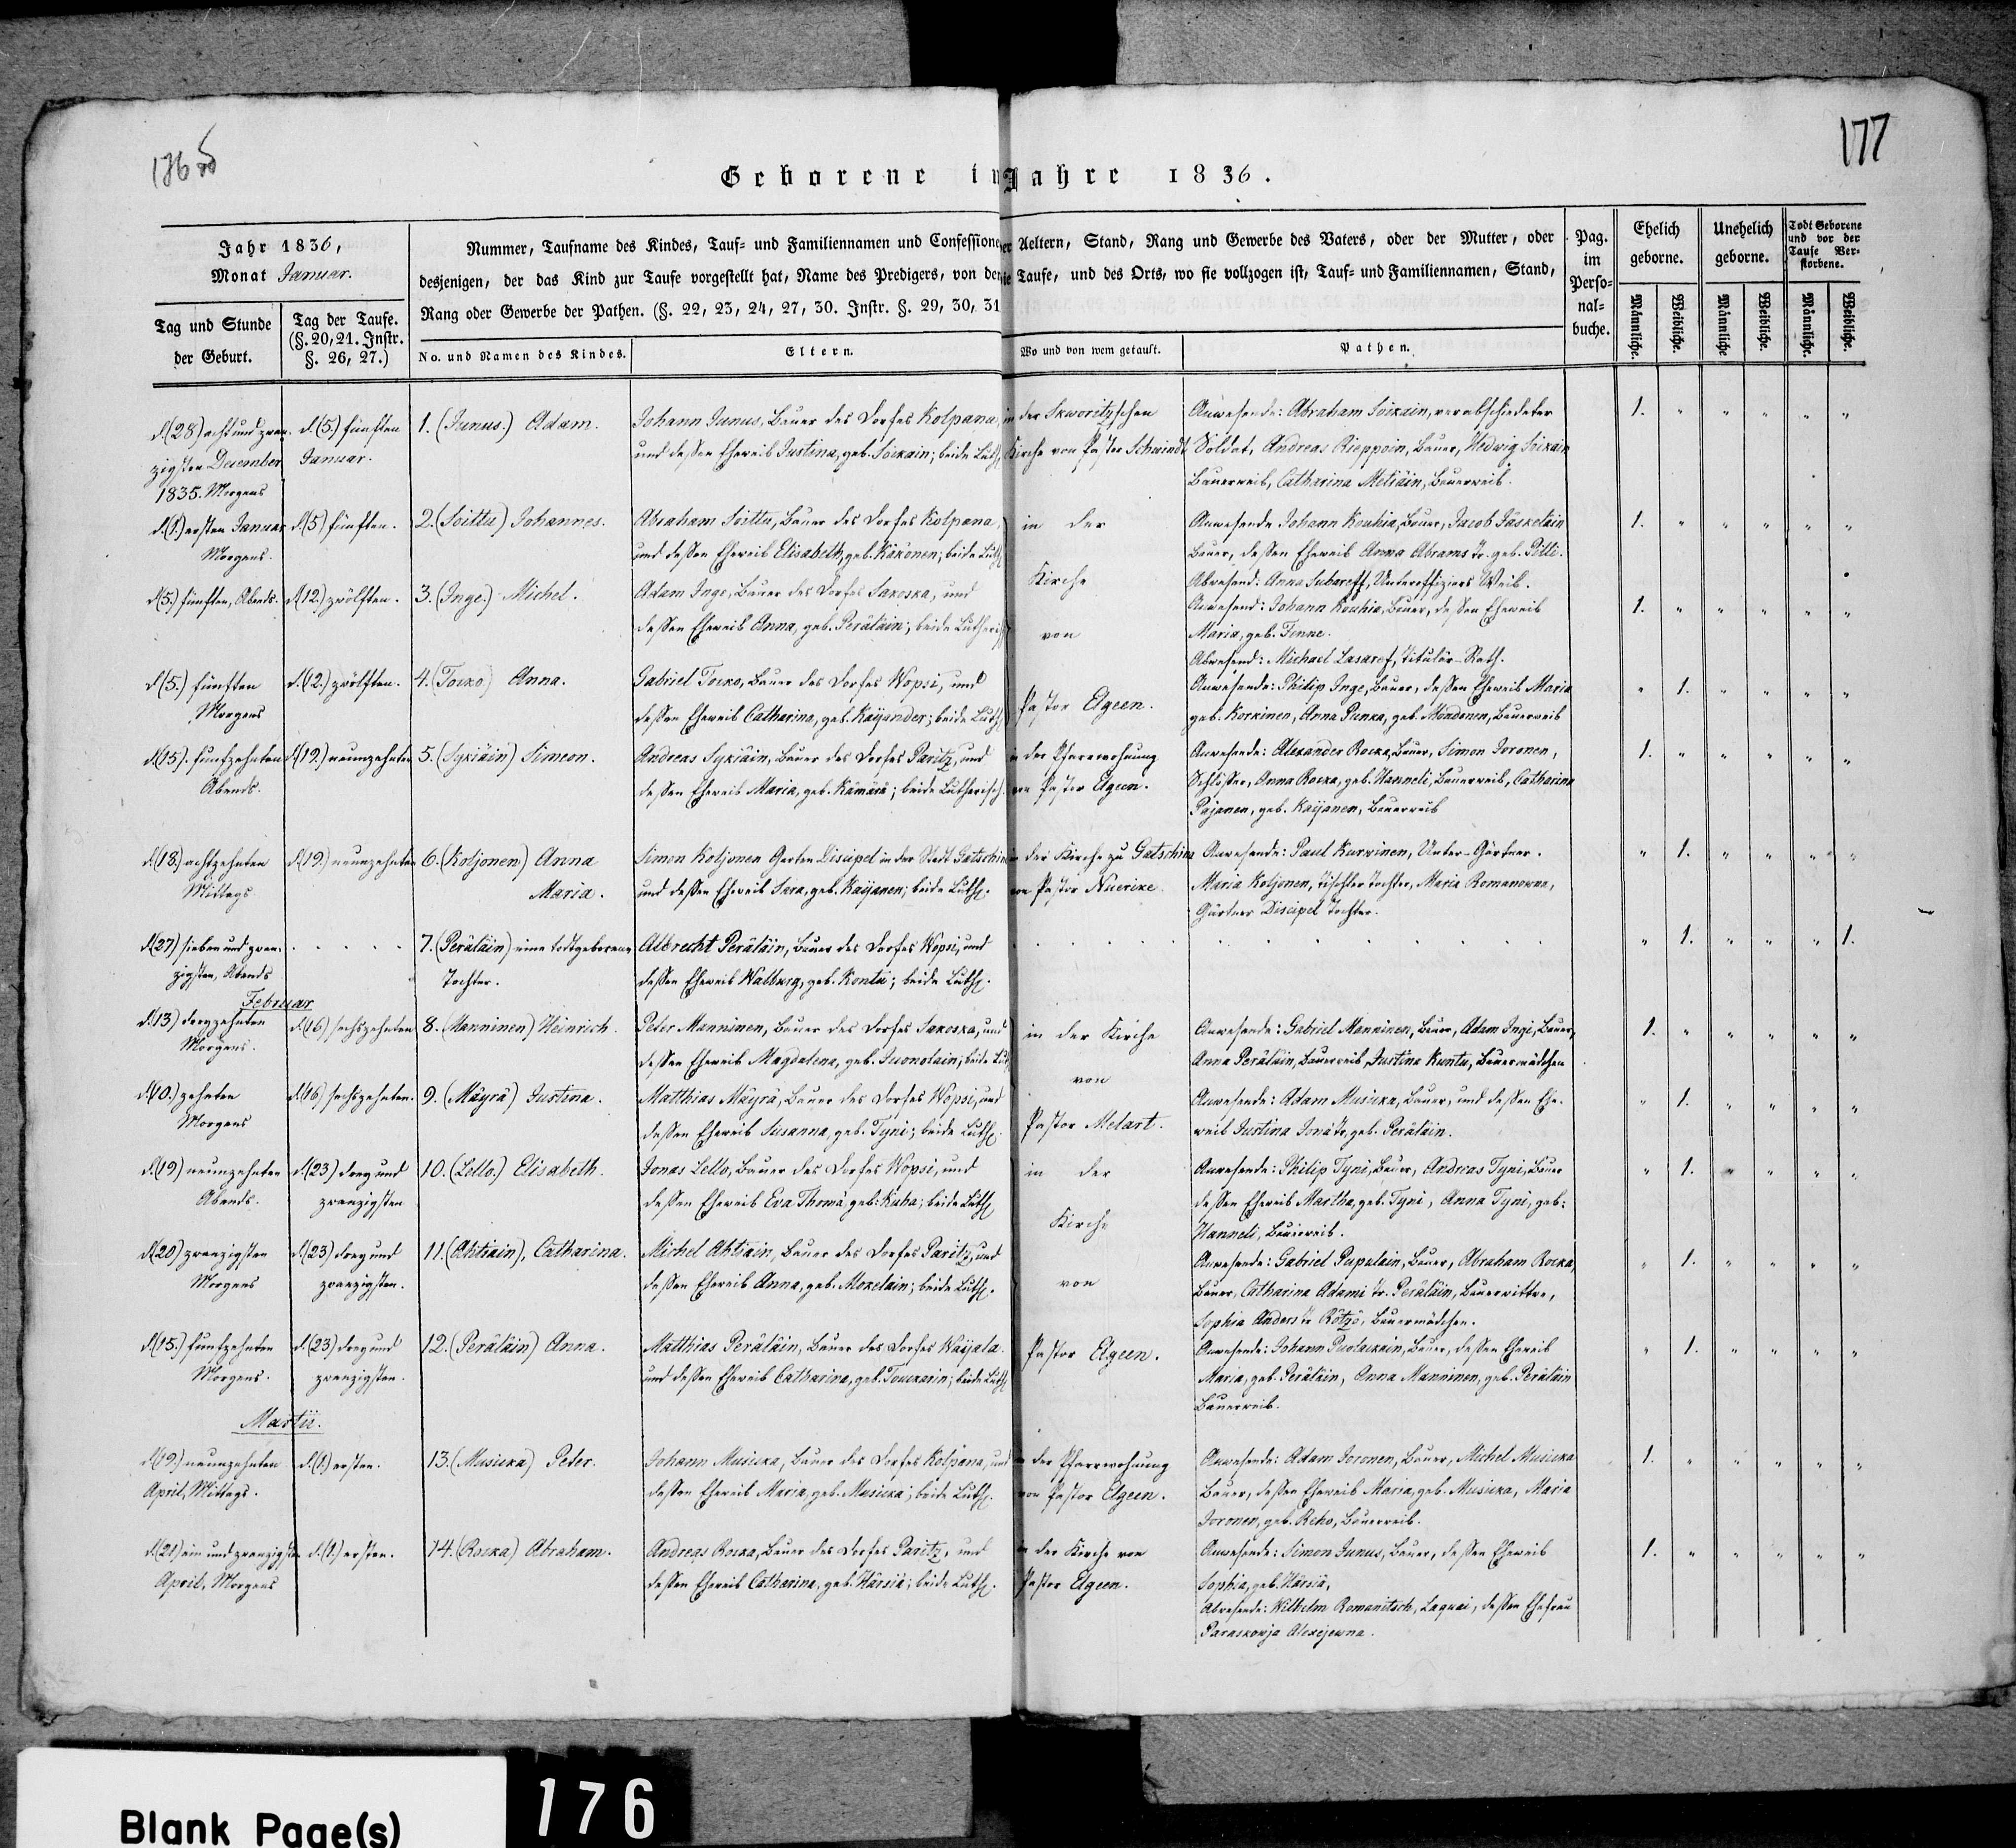 177
Geborene im Jahre 1836.
Jahr 1836,
Monat Januar.
Tag und Stunde
der Geburt.
Tag der Taufe.
(§. 20, 21. Instr.
§. 26, 27.)
Nummer, Taufname des Kindes, Tauf- und Familiennamen und Confession der Aeltern, Stand, Rang und Gewerbe des Vaters, oder der Mutter, oder
desjenigen, der das Kind zur Taufe vorgestellt hat, Name des Predigers, von dem die Taufe, und des Orts, wo sie vollzogen ist, Tauf- und Familiennamen, Stand,
Rang oder Gewerbe der Pathen. (§. 22, 23, 24, 27, 30. Instr. §. 29, 30, 31
No. und Namen des Kindes.
Eltern.
Wo und von wem getauft.
Pathen.
Pag.
im
Perso-
nal-
buche.
Ehelich
geborne.
Unehelich
geborne.
Todt Geborene
und vor der
Taufe Ver-
storbene.
Männliche.
Weibliche.
Männliche
Weibliche.
Männliche.
Weibliche.
d. (28) acht und zwan-
zigsten December
1835. Morgens
d. (5.) fünften
Januar.
1. (Junus.) Adam.
Johann Junus, Bauer des Dorfes Kolpana,
und deßen Eheweib Justina, geb. Soikain; beide Luth.
in der Skworitzschen
Kirche von Pastor Schwindt
Anwesende: Abraham Soikain, verabschiedeter
Soldat, Andreas Rieppoin, Bauer, Hedwig Soikain
Bauerweib, Catharina Metiäin, Bauerweib.
1. " " " " "
d. (1.) ersten Januar
Morgens.
d. (5) fünften.
2. (Soittu) Johannes.
Abraham Soittu, Bauer des Dorfes Kolpana,
und deßen Eheweib Elisabeth, geb. Käkönen; beide Luth.
in der
Kirche
von
Pastor Elgeen.
Anwesende Johann Kouhia, Bauer, Jacob Jäskeläin
Bauer, deßen Eheweib Anna Abrams Tr. geb. Pitti.
Abwesend: Anna Subareff, Unteroffiziers Weib.
1. " " " " "
d. (5.) fünften, Abends.
d. (12.) zwölften.
3. (Inge.) Michel.
Adam Inge, Bauer des Dorfes Sakoska, und
deßen Eheweib Anna, geb. Peräläin; beide Lutherisch
Anwesend: Johann Kouhia, Bauer, deßen Eheweib
Maria, geb. Tinne.
Abwesend: Michael Lasaref, Titulär-Rath.
1. " " " " "
d. (5.) fünften
Morgens
d. (12.) zwölften.
4. (Toiko) Anna.
Gabriel Toiko, Bauer des Dorfes Wopsi, und
deßen Eheweib Catharina, geb. Kaijander; beide Luth.
Anwesende: Philip Inge, Bauer, deßen Eheweib Maria
geb. Korkinen, Anna Punka, geb. Mondonen, Bauerweib
" 1. " " " "
d. (15). funfzehnten
Abends.
d. (19.) neunzehnten
5. (Sykiäin) Simeon.
Andreas Sykiäin, Bauer des Dorfes Paritz, und
deßen Eheweib Maria, geb. Kämärä; beide Lutherisch.
in der Pfarrwohnung
von Pastor Elgeen.
Anwesende: Alexander Rocka, Bauer, Simon Joronen,
Schloßer, Anna Rocka, geb. Hanneli, Bauerweib, Catharina
Pajanen, geb. Kaijanen, Bauerweib
1. " " " " "
d. (18.) achtzehnten
Mittags
d. (19.) neunzehnten
6. (Koljonen) Anna
Maria.
Simon Koljonen Garten Discipel in der Stadt Gatschina
und deßen Eheweib Sara, geb. Kaijanen; beide Luth.
in der Kirche zu Gatschina
von Pastor Nuerixe.
Anwesende: Paul Kurvinen, Unter-Gärtner.
Maria Koljonen, Tischler Tochter, Maria Romanowna,
Gärtner Discipel Tochter.
" 1. " " " "
d. (27) sieben und zwan-
zigsten, Abends
. . . . .
7. (Peräläin) eine todtgeborene
Tochter.
Albrecht Peräläin, Bauer des Dorfes Wopsi, und
deßen Eheweib Walburg, geb. Kontu; beide Luth.
" 1. " " " 1.
Februar
d. (13) dreyzehnten
Morgens.
d. (16) sechszehnten
8. (Manninen) Heinrich.
Peter Manninen, Bauer des Dorfes Sakoska, und
deßen Eheweib Magdalena, geb. Suonolain; beide Luth.
in der Kirche
von
Pastor Melart.
Anwesende: Gabriel Manninen, Bauer, Adam Inge, Bauer,
Anna Peräläin, Bauerweib, Justina Kuntu, Bauermädchen
1. " " " " "
d. (10.) zehnten
Morgens
d. (16) sechszehnten.
9. (Mäyrä) Justina.
Matthias Mäyrä, Bauer des Dorfes Wopsi, und
deßen Eheweib Susanna, geb. Tyni; beide Luth.
Anwesende: Adam Musikka, Bauer, und deßen Ehe-
weib Justina Jonä Tr, geb. Peräläin.
" 1. " " " "
d. (19) neunzehnten
Abends.
d. (23) drey und
zwanzigsten
10. (Lello.) Elisabeth.
Jonas Lello, Bauer des Dorfes Wopsi, und
deßen Eheweib Eva Thomä geb: Kuha; beide Luth.
in der
Kirche
von
Pastor Elgeen.
Anwesende: Philip Tyni, Bauer, Andreas Tyni, Bauer
deßen Eheweib Martha, geb. Tyni, Anna Tyni, geb:
Hanneli, Bauerweib.
" 1. " " " "
d. (20) zwanzigsten
Morgens
d. (23) drey und
zwanzigsten.
11. (Ahtiain), Catharina.
Michel Ahtiain, Bauer des Dorfes Paritz, und
deßen Eheweib Anna, geb. Mokelain; beide Luth.
Anwesende: Gabriel Pupulain, Bauer, Abraham Rocka,
Bauer, Catharina Adami Tr. Peräläin, Bauerwittwe,
Sophia Anders Tr Rötzö, Bauermädchen.
" 1. " " " "
d. (15.) funfzehnten
Morgens.
d. (23) drey und
zwanzigsten.
12. (Peräläin) Anna.
Matthias Peräläin, Bauer des Dorfes Waijala
und deßen Eheweib Catharina, geb. Touckarin; beide Luth.
Anwesende: Johann Puolackain, Bauer, deßen Eheweib
Maria, geb. Peräläin, Anna Manninen, geb. Peräläin
Bauerweib.
" 1. " " " "
Martii.
d. (19.) neunzehnten
April, Mittags.
d. (1.) ersten.
13. (Musikka) Peter.
Johann Musikka, Bauer des Dorfes Kolpana, und
deßen Eheweib Maria, geb. Musikka; beide Luth.
in der Pfarrwohnung
von Pastor Elgeen.
Anwesende: Adam Joronen, Bauer, Michel Musikka
Bauer, deßen Eheweib Maria, geb. Musikka, Maria
Joronen, geb. Riho, Bauerweib.
1. " " " " "
d. (21) ein und zwanzigsten
April, Morgens
d. (1.) ersten.
14. (Rocka) Abraham.
Andreas Rocka, Bauer des Dorfes Paritz, und
deßen Eheweib Catharina, geb. Härsiä; beide Luth.
in der Kirche von
Pastor Elgeen.
Anwesende: Simon Junus, Bauer, deßen Eheweib
Sophia, geb. Härsiä,
Abwesende: Wilhelm Romanitsch, Laquai, deßen Ehefrau
Paraskowja Alexejewna.
1. " " " " "
Blank Page(s)
176